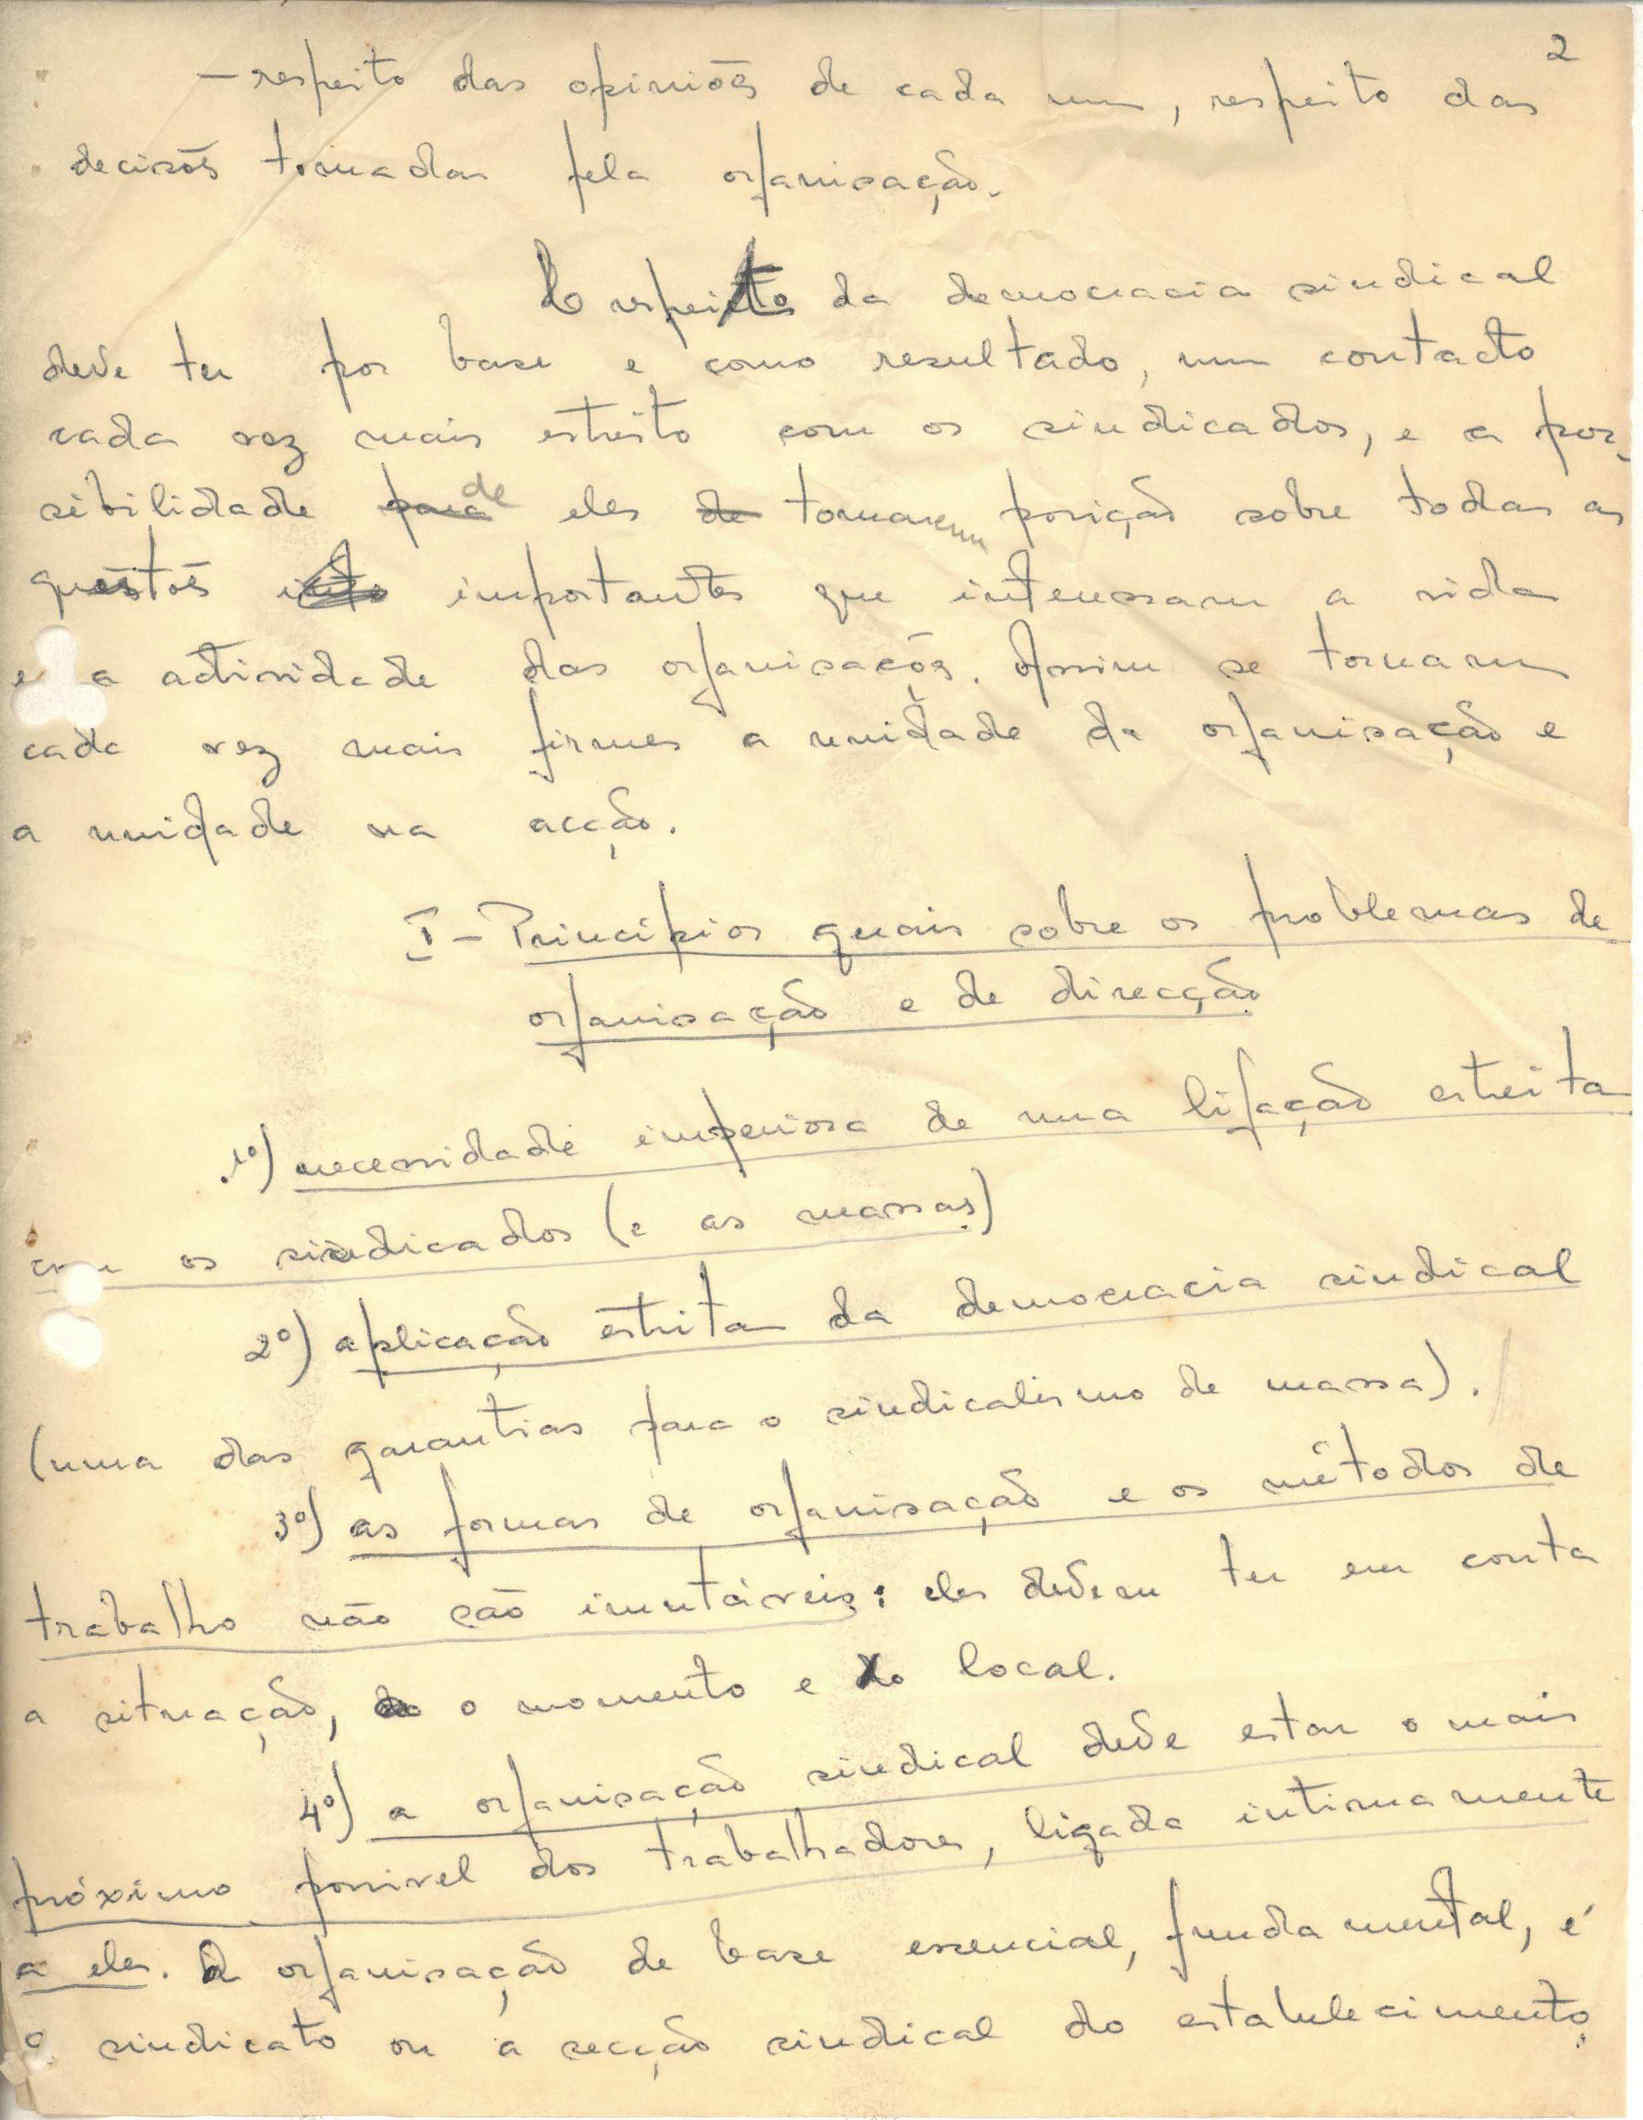 2
– respeito das opiniões de cada um, respeito das
decisões tomadas pela organisação.
O respeito da democracia sindical
deve ter por base e como resultado, um contacto
cada vez mais estreito com os sindicados, e a pos-
sibilidade para de eles de tomarem posição sobre todas as
questões importantes que interessam a vida
e a actividade das organisações. Assim se tornam
cada vez mais firmes a unidade da organisação e
a unidade na acção.
I – Princípios gerais sobre os problemas de
organisação e de direcção
1º) necessidade imperiosa de uma ligação estreita
com os sindicados (e as massas)
2º) aplicação estrita da democracia sindical
(uma das garantias para o sindicalismo de massa).
3º) as formas de organisação e os métodos de
trabalho não são imutáveis: eles devem ter em conta
a situação, o momento e o local.
4º) a organisação sindical deve estar o mais
próximo possivel dos trabalhadores, ligada intimamente
a eles. A organisação de base essencial, fundamental, é
o sindicato ou a secção sindical do estabelecimento.